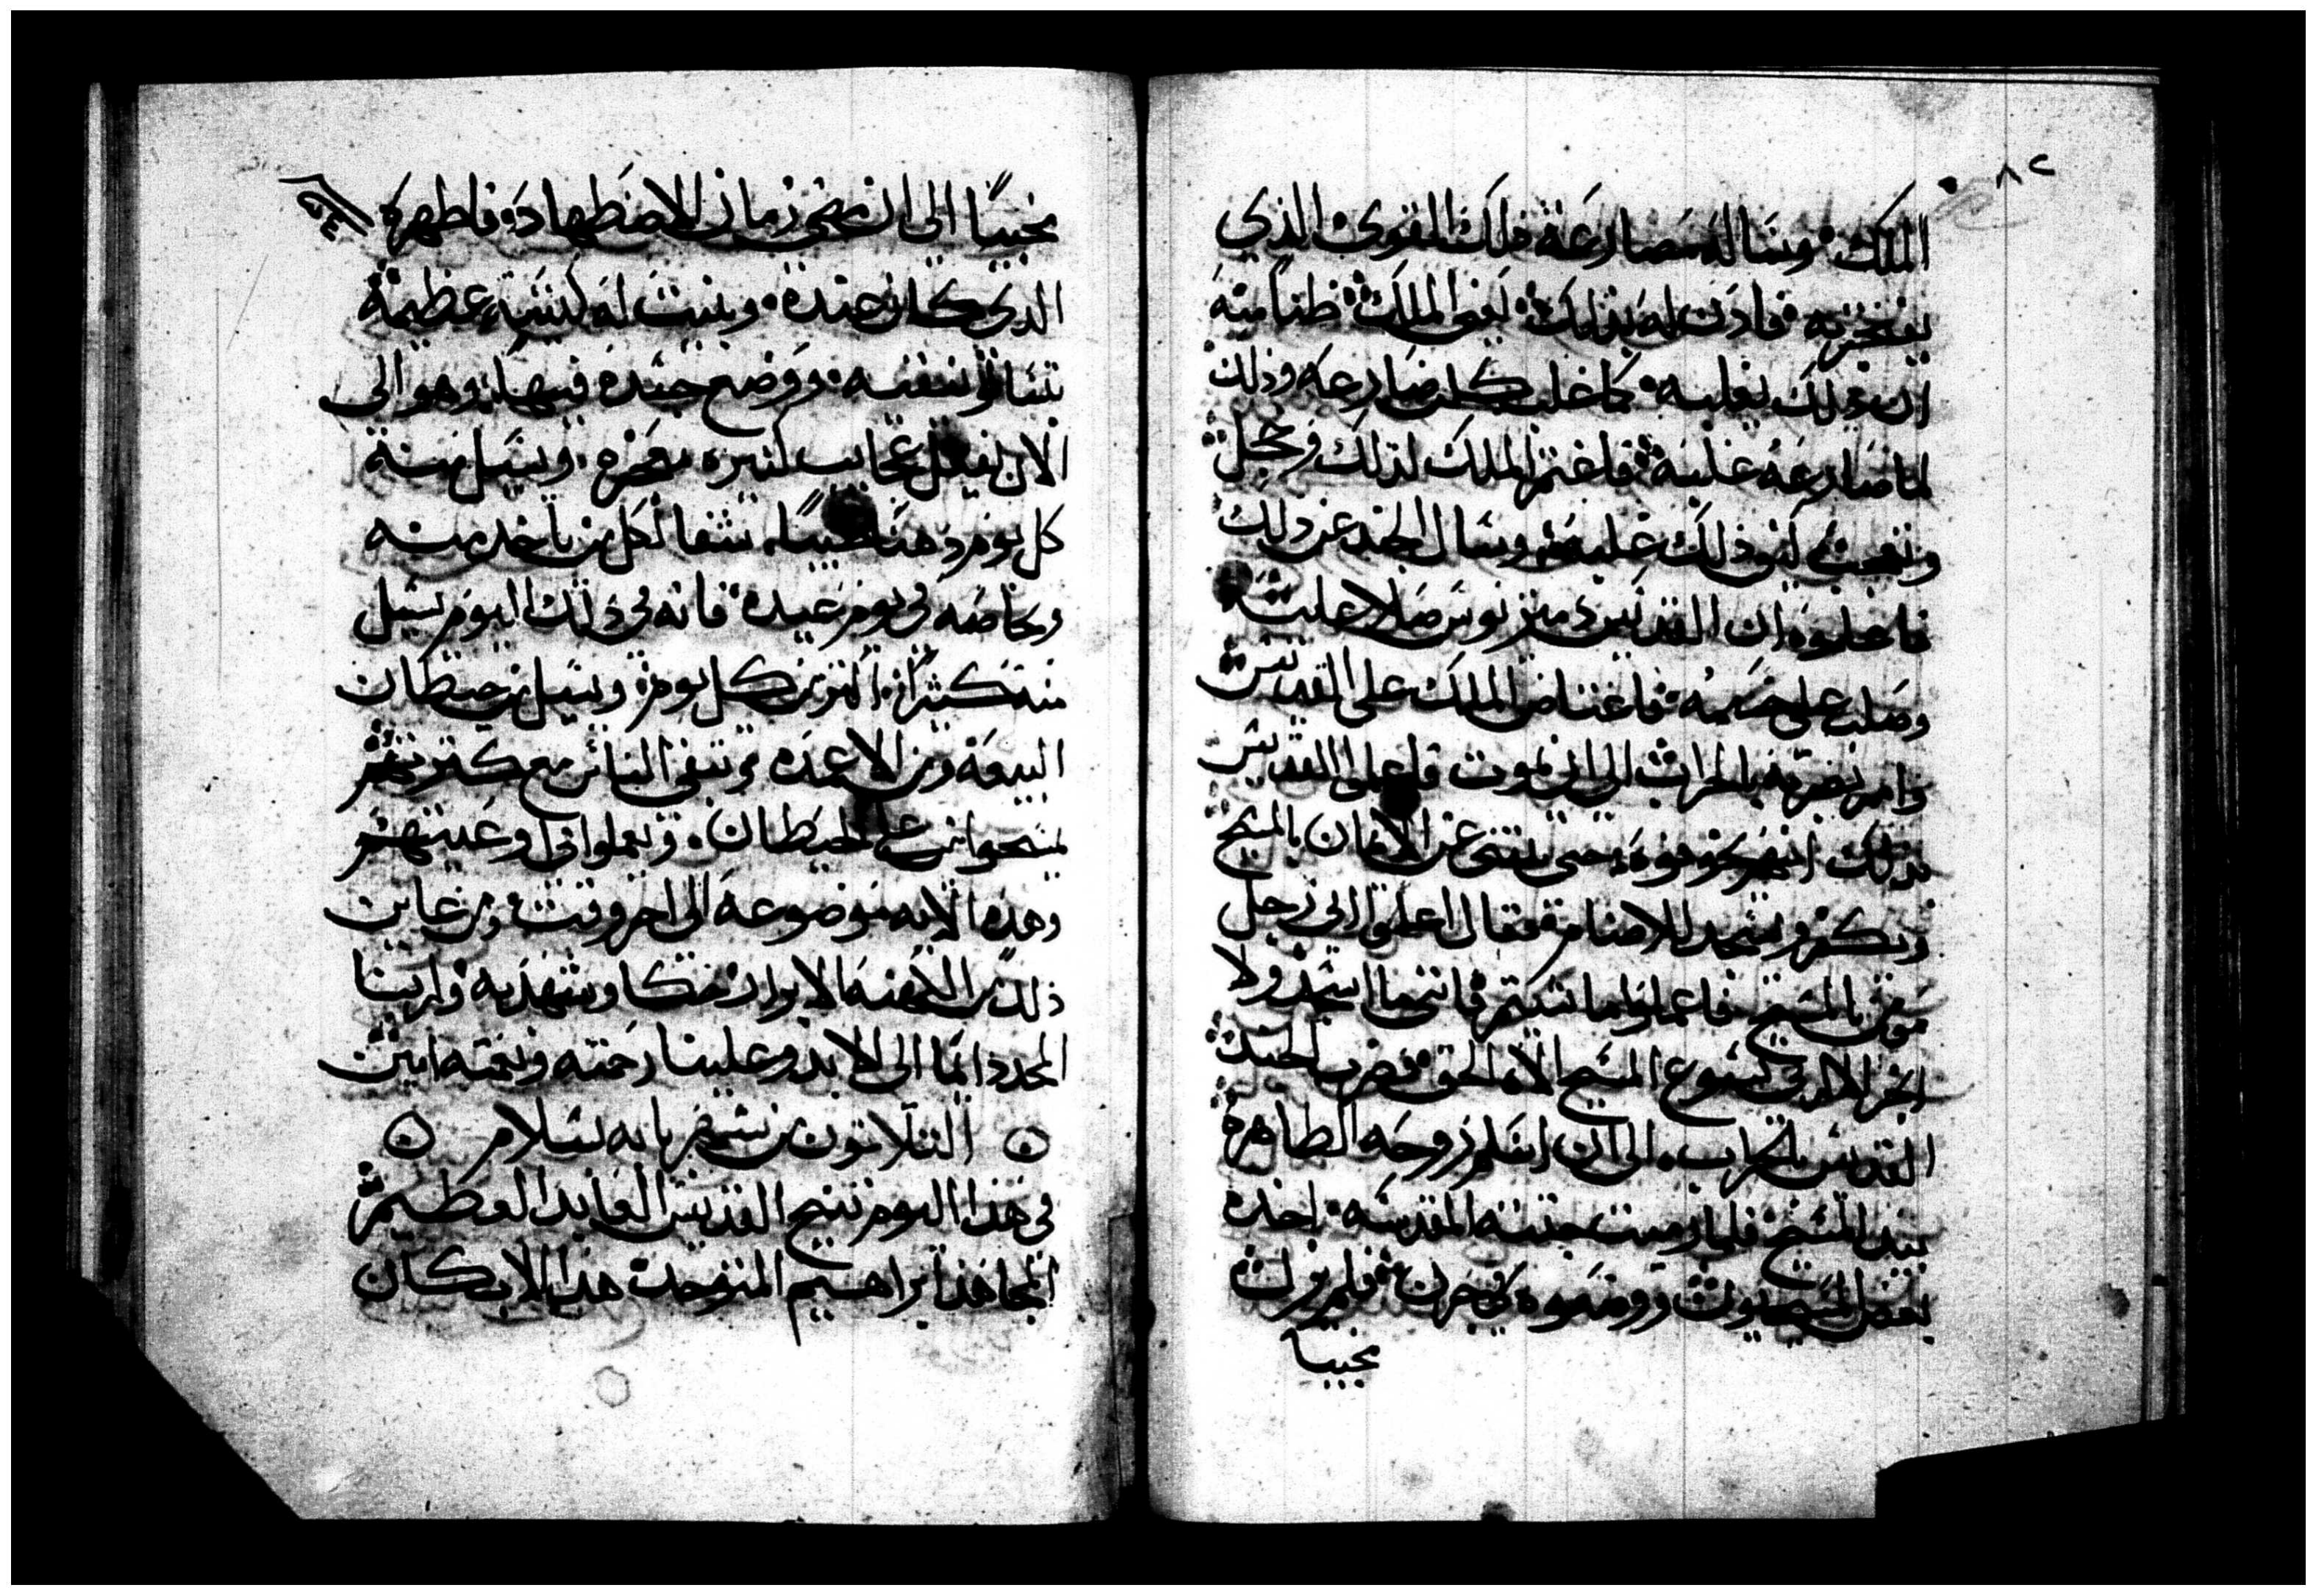 ٨٢
الملك وساله مصارعة ذلك القوي الذي
يفتخر به فاذن له بذلك يعني الملك ظنا منه
ان ذلك يغلبه كما غلب كلمن صارعه وذلك
لما صارعه غلبه فاغتم الملك لذلك وخجل
وتعجب كيف ذلك غلبه وسال الجند عن ذلك
فاعلموه ان القديس دمتريوس صلا عليه
وصلب على جسمه فاغتاض الملك على القديس
وامر بضربه بالحراب الى ان يموت فاعلموا القديس
بذلك انهم يخوفوه حتى ينثني عن الامان بالمسيح
ويكفر ويسجد للاصنام فقال اعلموا اني رجل
مومن بالمسيح فاعملوا ما شيتم فانني ما اسجد ولا
ابخر الا لربي يسوع المسيح الاه الحق فضرب الجند
القديس بالحراب الى ان اسلم روحه الطاهرة
بيد المسيح فلما رميت جثته المقدسه اخذه
بعض المسيحيون ووضعوه في جرن فلم يزل
مخبيا
مخبيا الى ان مضى زمان الاضطهاد فاظهره
الذي كان عنده وبنيت له كنيسة عظيمة
بتسالونيقيه ووضع جسده فيها وهو الى
الان يفعل عجايب كثيره معجزه ويسيل منه
كل يوم دهنا طيبا شفا لكل من ياخد منه
وبخاصه في يوم عيده فانه في ذلك اليوم يسيل
منه كثيرا اكثر من كل يوم ويسيل من حيطان
البيعة ومن الاعمده وتبقى الناس مع كثرتهم
يمسحوا من على الحيطان ويملوا اواني وعيتهم
وهذه الايه موضوعه الى اخر وقت ومن عاين
ذلك من الكهنه الابرار حكا وشهد به ولربنا
المجد دايما الى الابد وعلينا رحمته ونعمته امين
التلاتون من شهر بابه بسلام
في هذا اليوم تنيح القديس العابد العظيم
المجاهد ابراهيم المتوحد هذا الاب كان